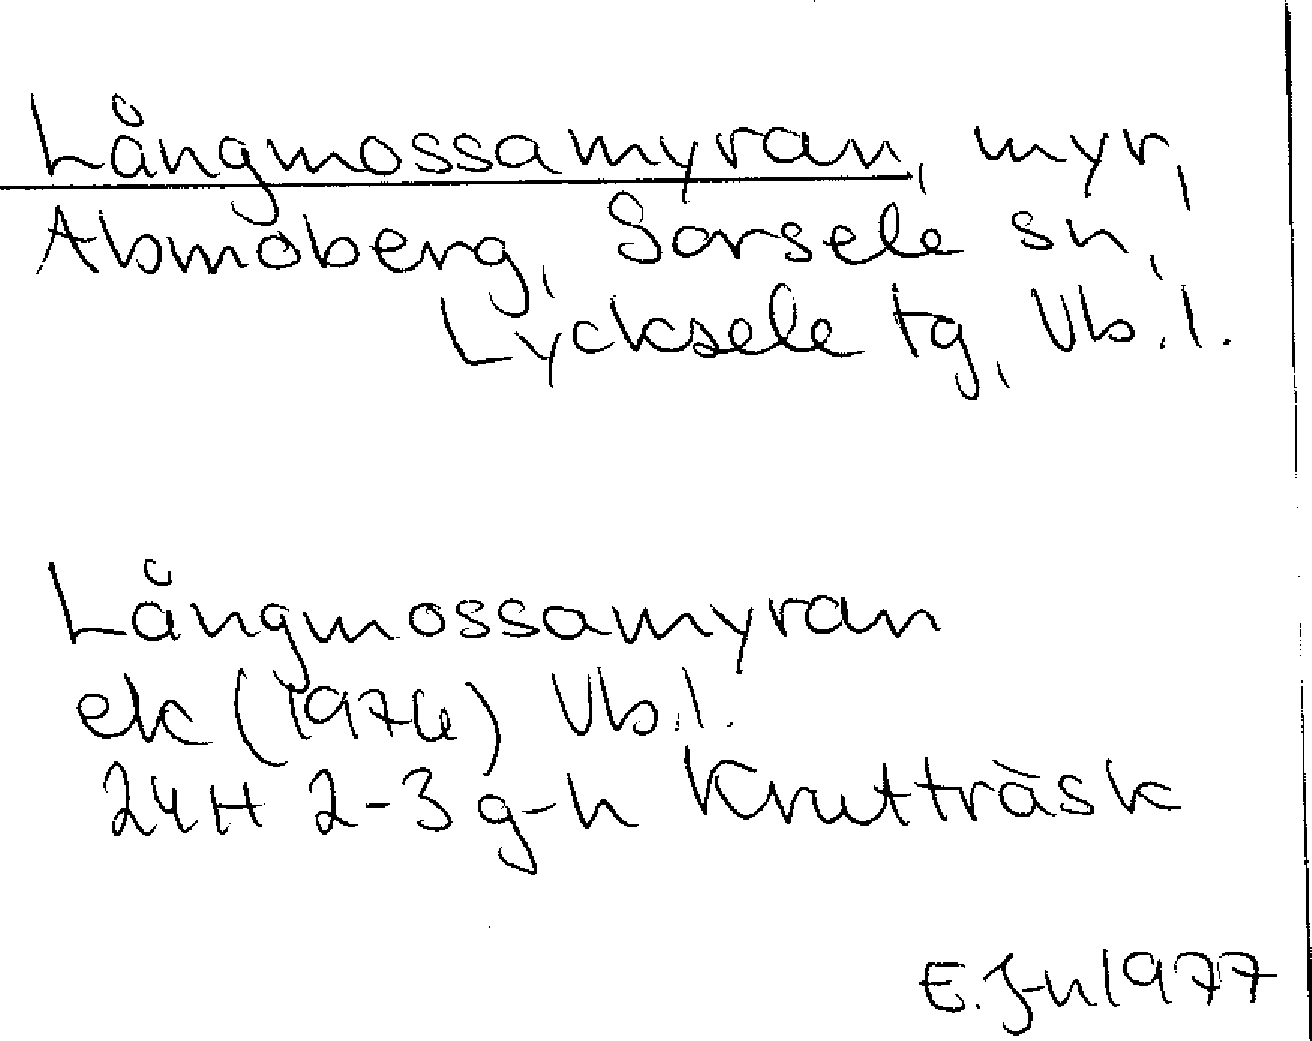 Långmossamyran, myr,
Abmoberg, Sorsele sn,
Lycksele tg, Vb. l.
Långmossamyran
ek (1976) Vb. l.
24H 2-3 g-h Krutträsk
E. J-n 1977